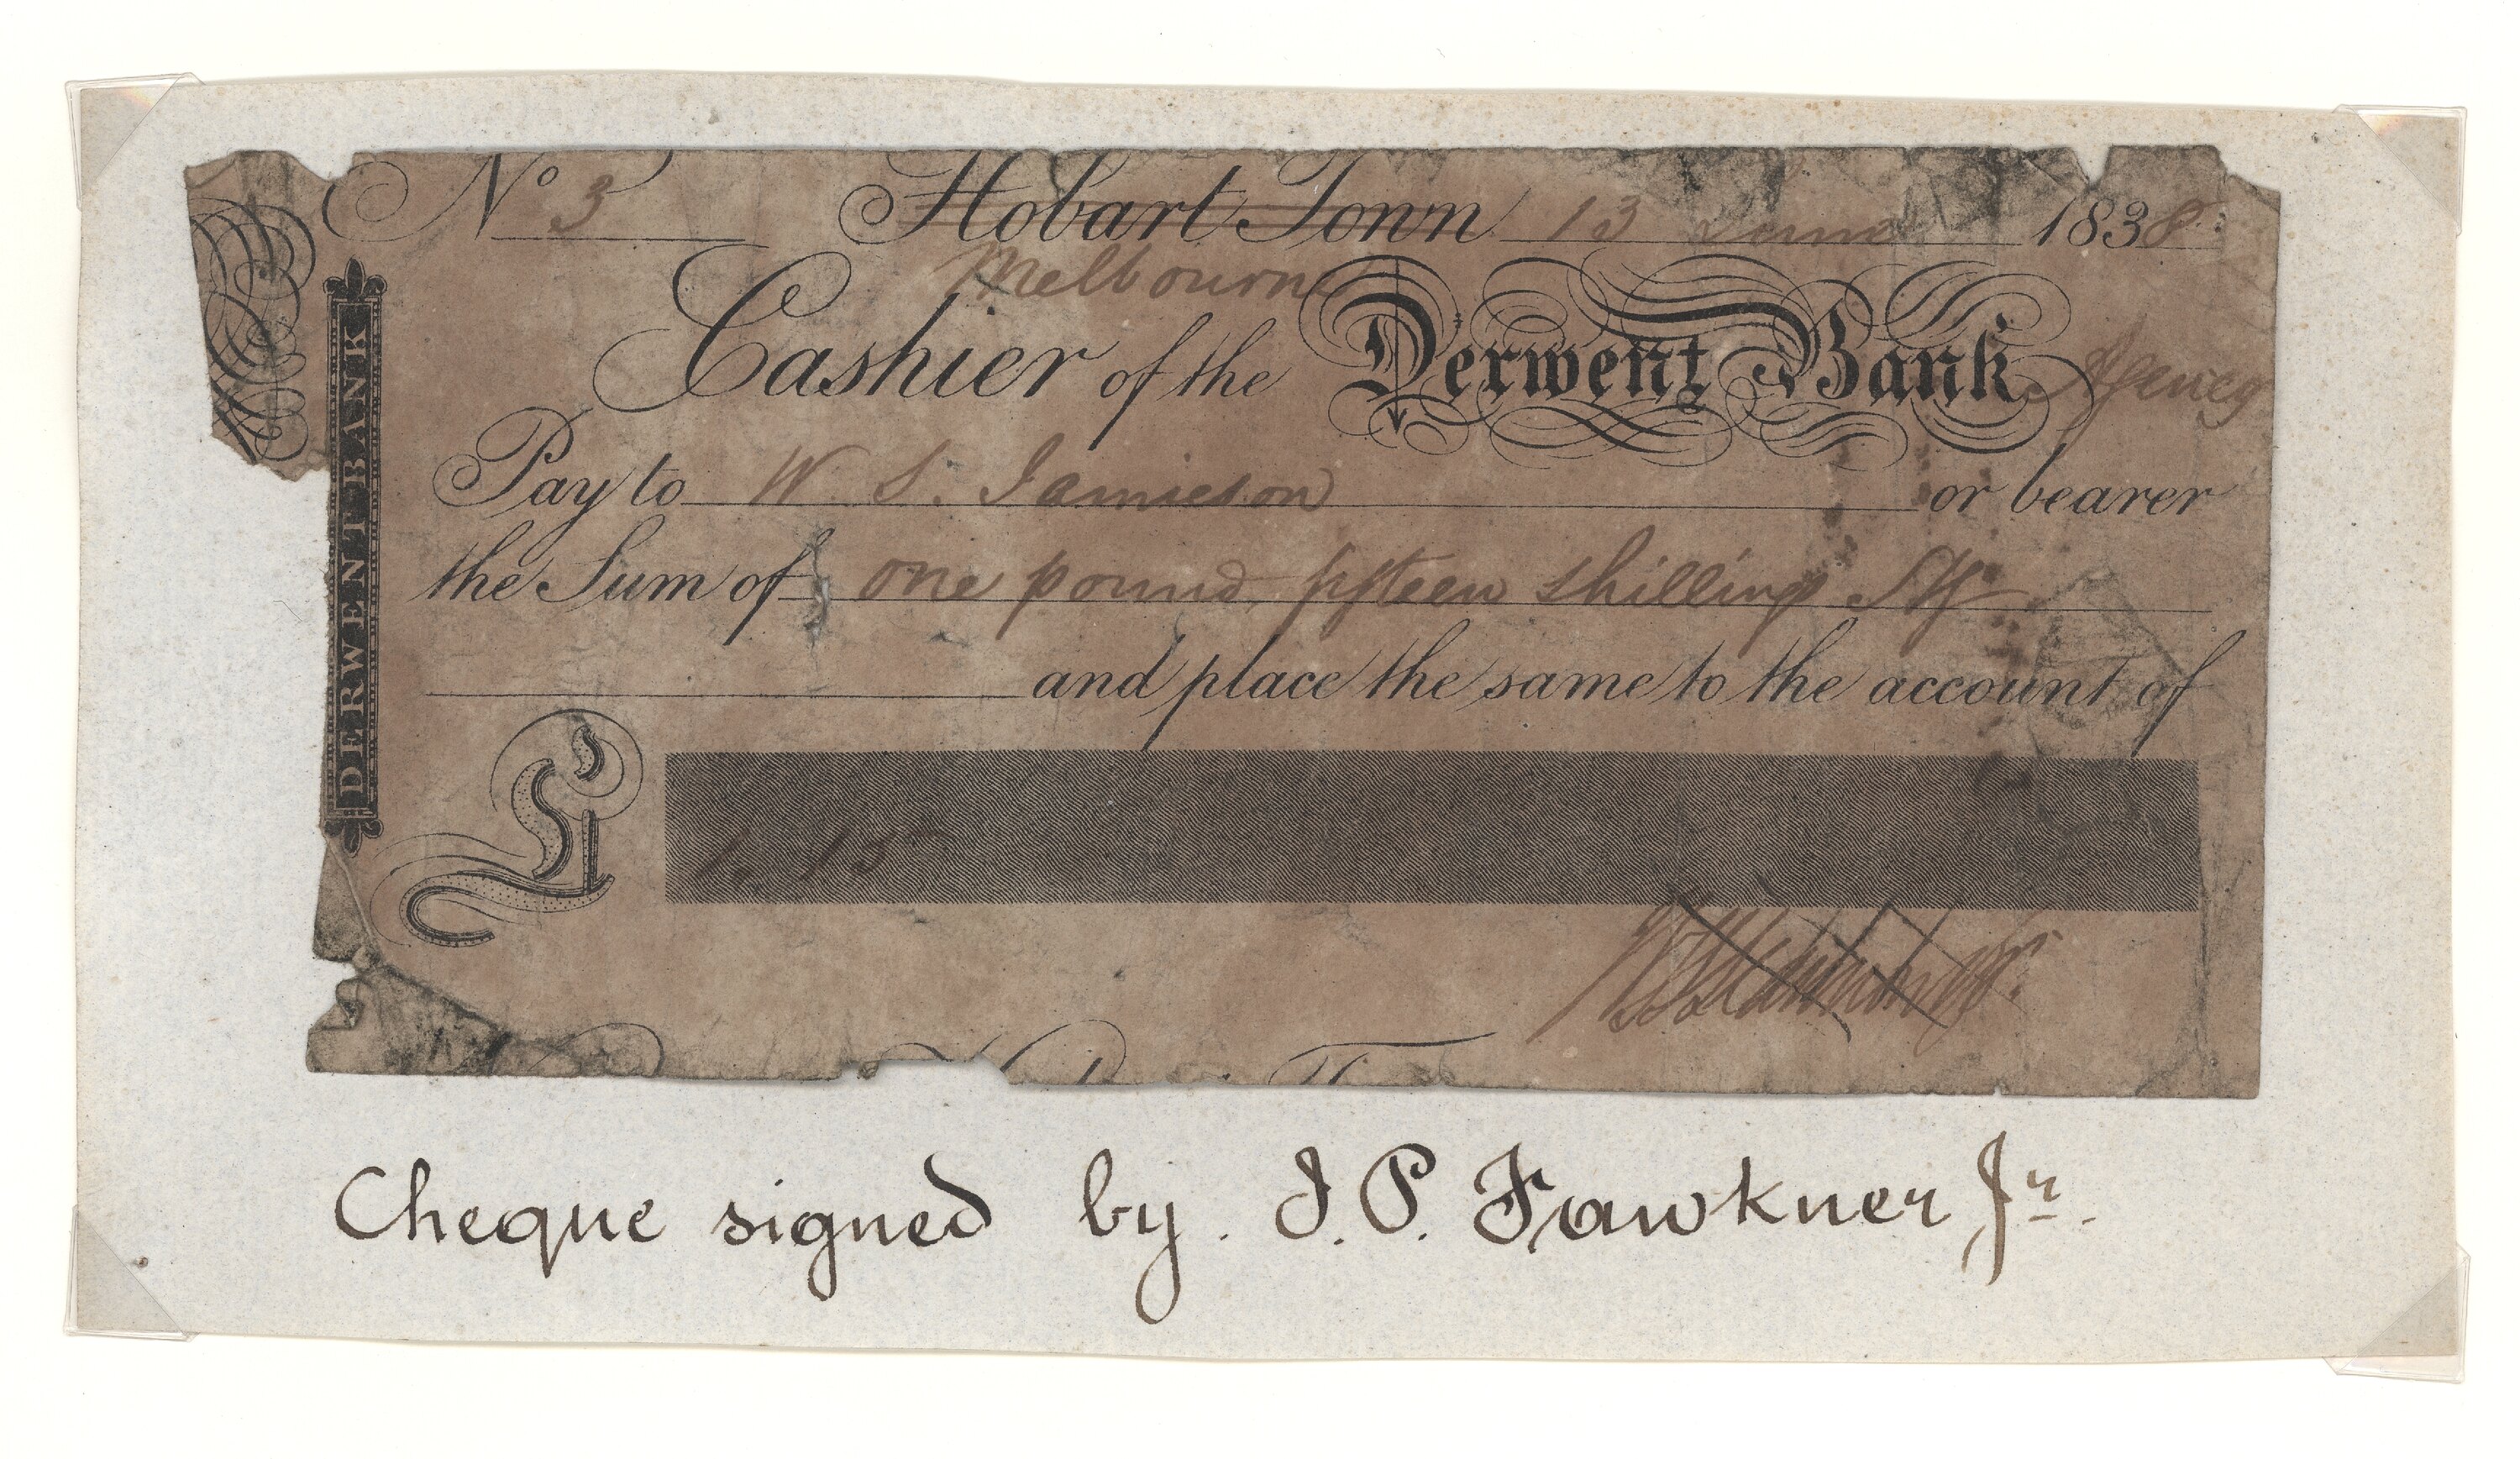 No 3 Hobart Town 13 June 1838
Melbourne
Cashier of the Derwent Bank Agency
Pay to W. S. Jamieson or bearer
the Sum of one pound fifteen shillings Stg
and place the same to the account of
£ 1. 15
DERWENT BANK
Cheque signed by. J. P. Fawkner Jr.